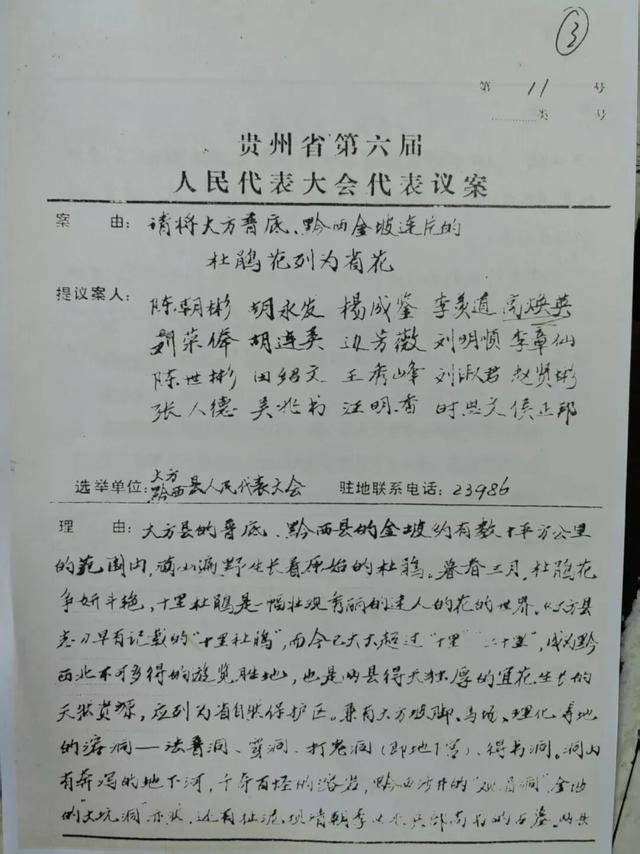 ③
第 11 号
类 号
贵州省第六届
人民代表大会代表议案
案 由：请将大方普底、黔西金坡连片的
杜鹃花列为省花
提议案人：陈朝彬 胡永发 楊成鉴 李美道
荣 胡连 边芳薇 刘明順 李章仙
陈世彬 田绍文 王秀峰 刘淑君 赵贤彬
张人德 吴兆书 汪明香 侯正邦
选举单位：大方黔西县人民代表大会 驻地联系电话：23986
理 由：大方县的普底、黔西县的金坡约有数十平方公里
的范围内，满山遍野生长着原始的杜鹃。暮春三月，杜鹃花
争妍斗艳，十里杜鹃是一幅壮观秀丽的迷人的花的世界。《大方县
志》早有记载的“十里杜鹃”，而今已大大超过“十里”“二十里”，成为黔
西北不可多得的游览胜地，也是两县得天独厚的宜花生长的
天然资源，应列为省自然保护区。兼有大方坡脚、马场、理化等地
的溶洞——法普洞、穿洞、打鬼洞（即地下宫）、得书洞。洞内
有奔泻的地下河，千奇百怪的溶岩，黔西沙井的“观音洞”金坡
的大坑洞 还有 清朝李 兵部尚书的石墓。两县